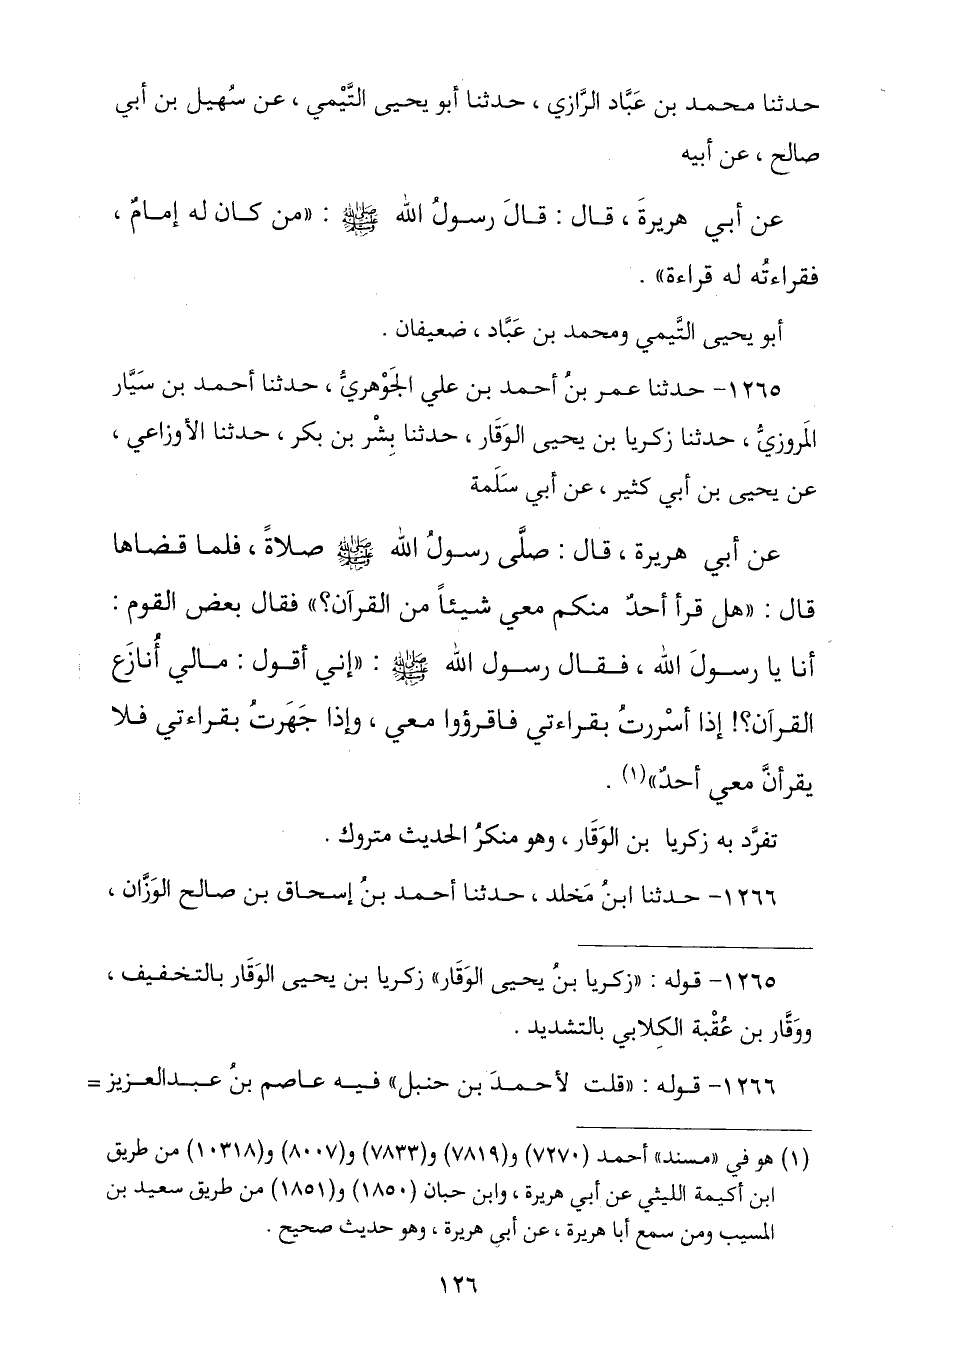 حدثنا محمد بن عَبَّاد الرَّازي ، حدثنا أبو يحيى التَّيْمي ، عن سُهيل بن أبي
صالح ، عن أبيه
عن أبي هريرةَ ، قال : قالَ رسولُ الله ﷺ : «من كان له إمامٌ ،
فقراءتُه له قراءة» .
أبو يحيى التَّيمي ومحمد بن عَبَّاد ، ضعيفان .
١٢٦٥- حدثنا عمر بنُ أحمد بن علي الجَوْهريُّ ، حدثنا أحمد بن سَيَّار
المَروزيُّ ، حدثنا زكريا بن يحيى الوَقَار ، حدثنا بِشْر بن بكر ، حدثنا الأوزاعي ،
عن يحيى بن أبي كثير ، عن أبي سَلَمة
عن أبي هريرة ، قال : صلَّى رسولُ الله ﷺ صلاةً ، فلما قضاها
قال : «هل قرأ أحدٌ منكم معي شيئاً من القرآن؟» فقال بعض القوم :
أنا يا رسولَ الله ، فقال رسول الله ﷺ : «إني أقول : مالي أُنازَع
القرآن؟! إذا أسْررتُ بقراءتي فاقرؤوا معي ، وإذا جَهَرتُ بقراءتي فلا
يقرأنَّ معي أحدٌ»(١) .
تفرَّد به زكريا بن الوَقَار ، وهو منكرُ الحديث متروك .
١٢٦٦- حدثنا ابنُ مَخلد ، حدثنا أحمد بنُ إسحاق بن صالح الوَزَّان ،
١٢٦٥- قوله : «زكريا بنُ يحيى الوَقَار» زكريا بن يحيى الوَقَار بالتخفيف ،
ووَقَّار بن عُقْبة الكِلابي بالتشديد .
١٢٦٦- قوله : «قلت لأحمدَ بن حنبل» فيه عاصم بنُ عبدالعزيز =
(١) هو في «مسند» أحمد (٧٢٧٠) و(٧٨١٩) و(٧٨٣٣) و(٨٠٠٧) و(١٠٣١٨) من طريق
ابن أكيمة الليثي عن أبي هريرة ، وابن حبان (١٨٥٠) و(١٨٥١) من طريق سعيد بن
المسيب ومن سمع أبا هريرة ، عن أبي هريرة ، وهو حديث صحيح .
١٢٦